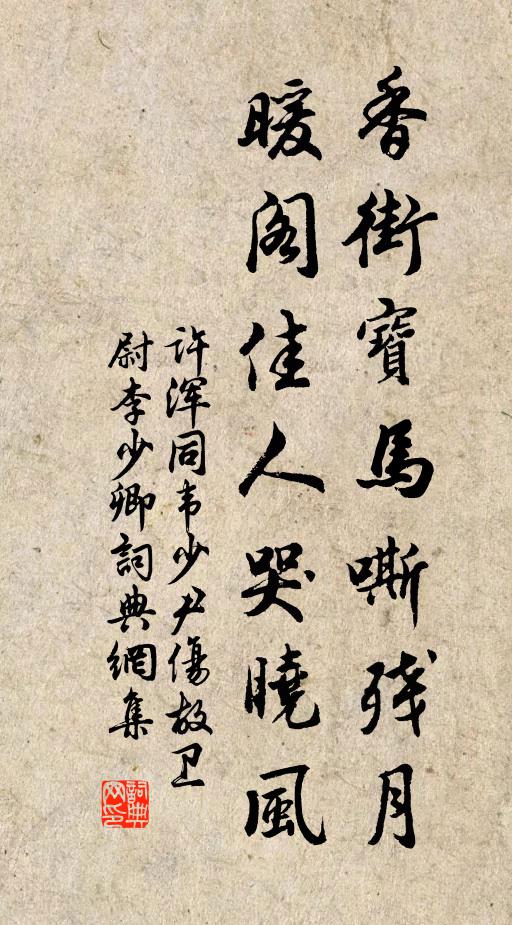 香街寶馬嘶殘月
暖阁佳人哭曉風
许渾同韦少尹傷故卫
尉李少卿詞典網集
詞典
网印